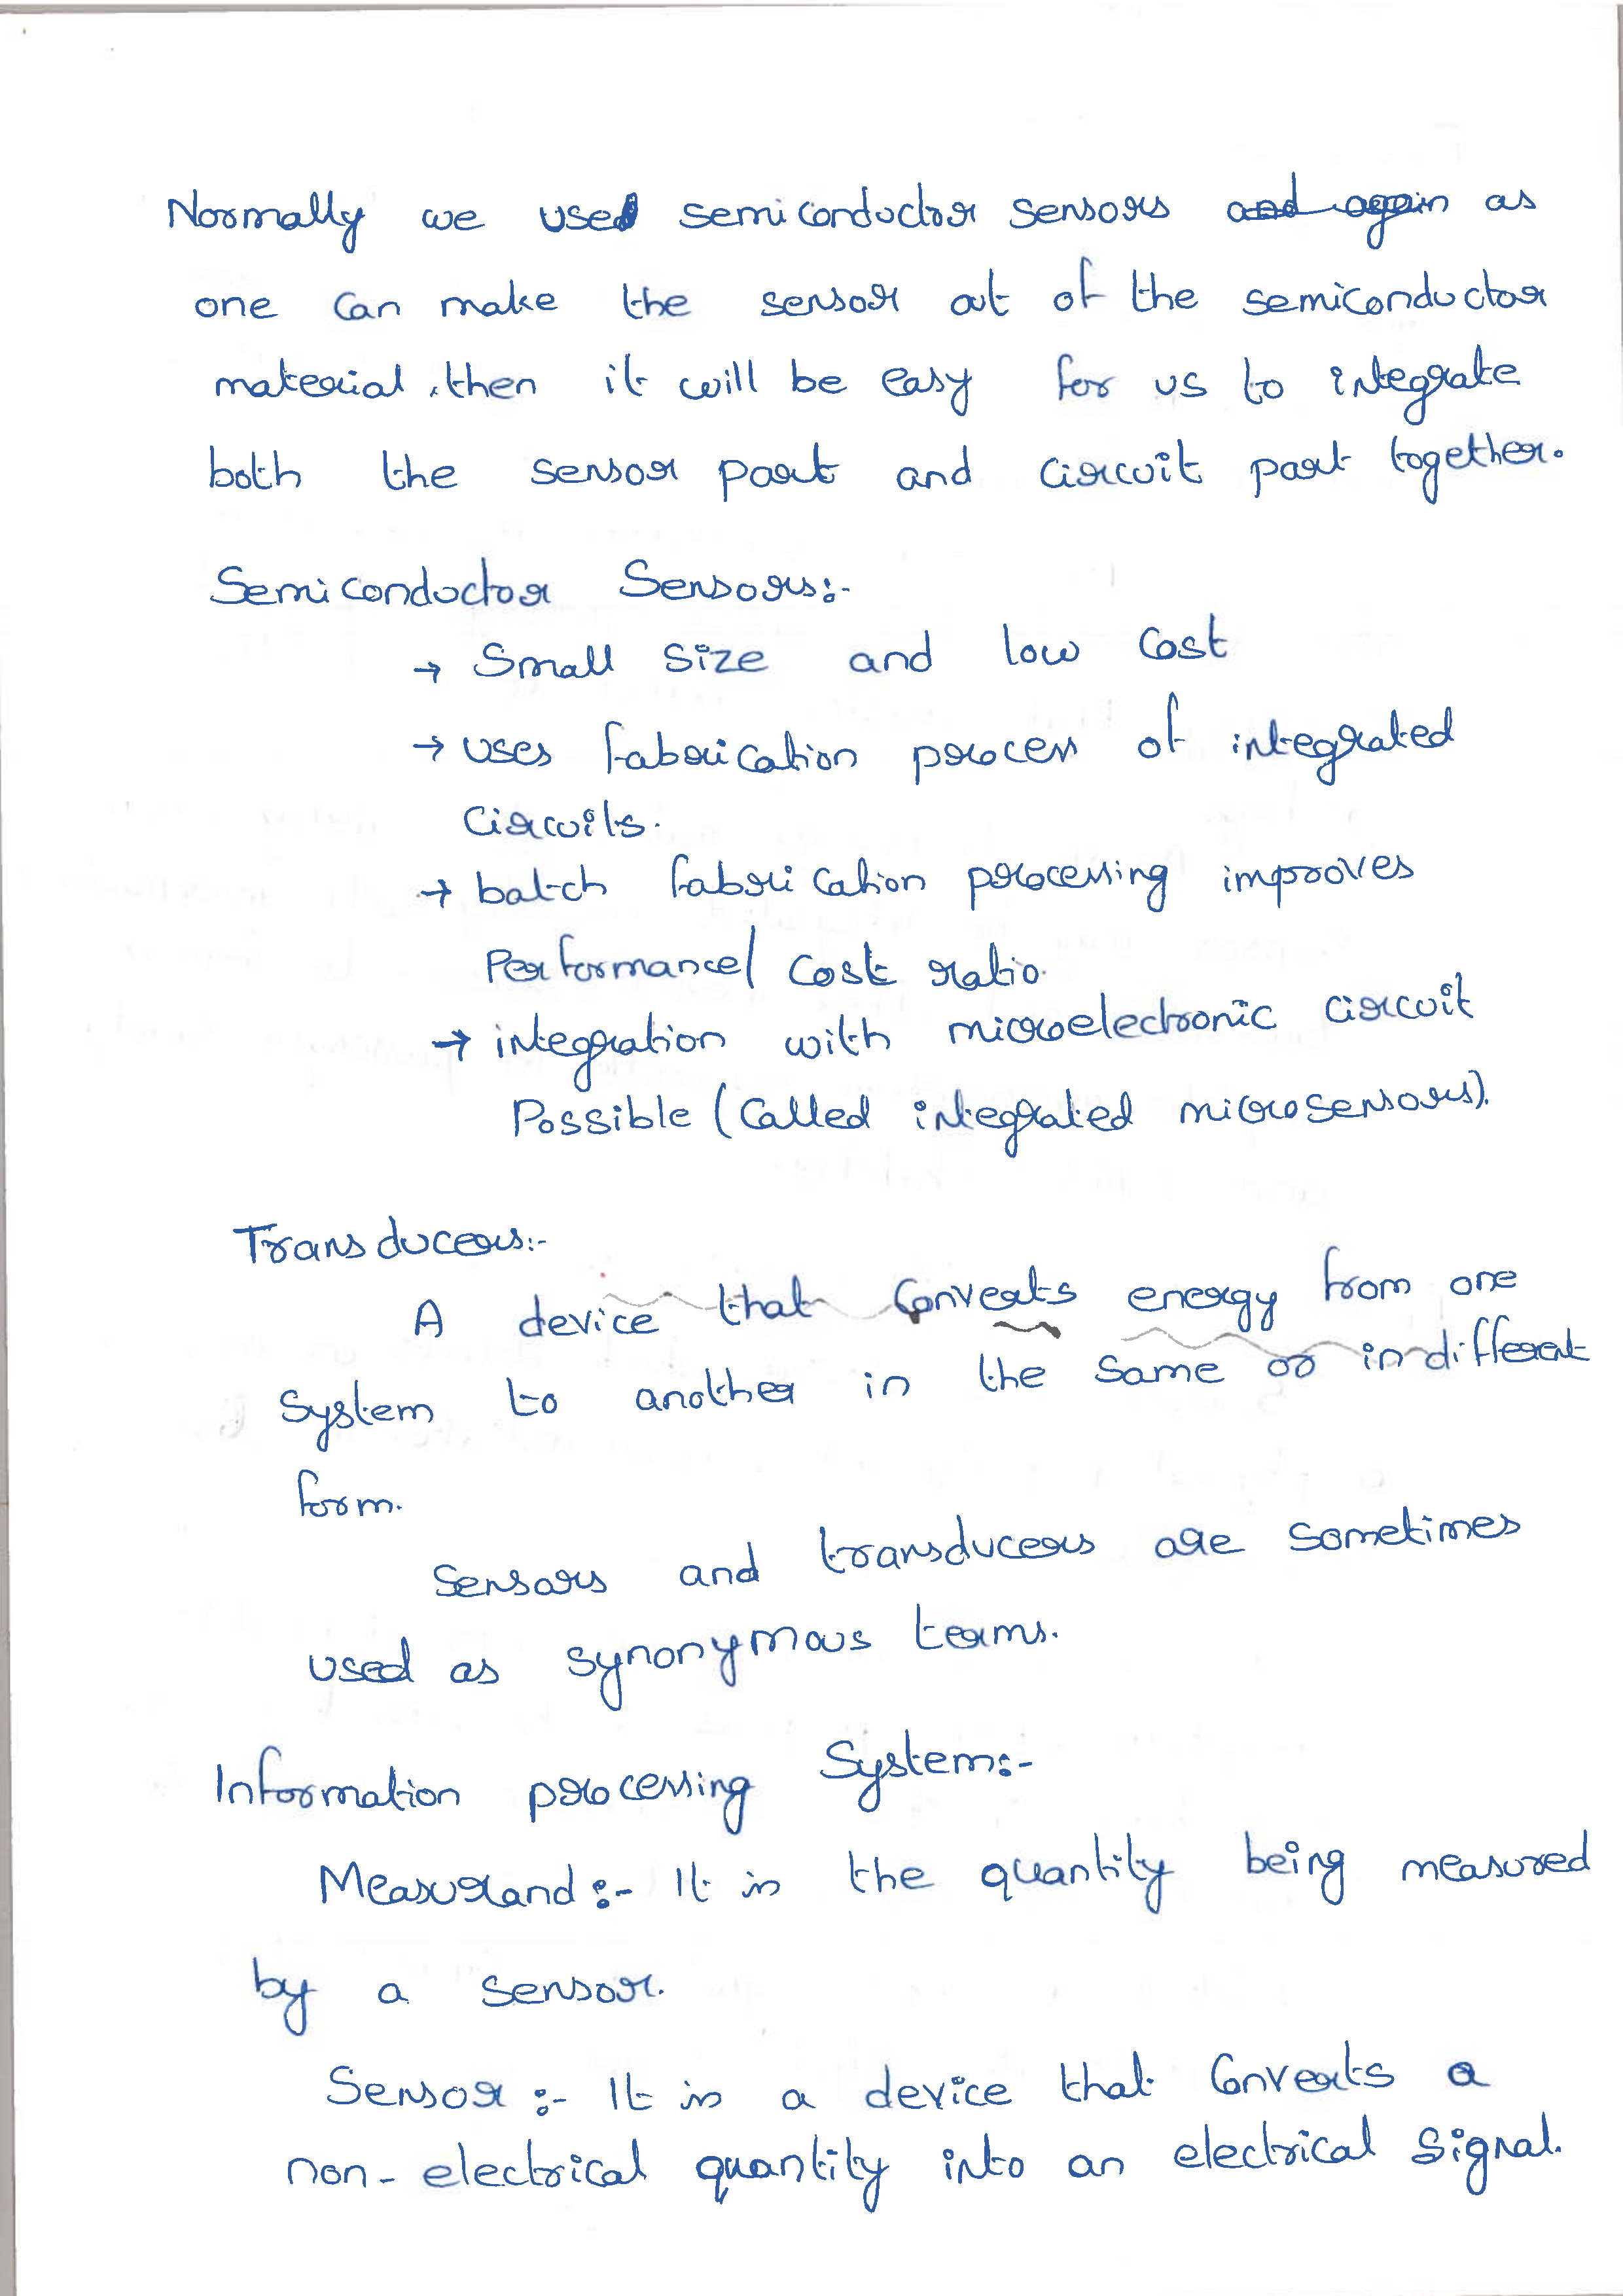 Normally we used semiconductor sensors and again as
one can make the sensor out of the semiconductor
material, then it will be easy for us to integrate
both the sensor part and circuit part together.
Semiconductor Sensors:-
→ Small size and low cost
→ uses fabrication process of integrated
circuits.
→ batch fabrication processing improves
Performance/ cost ratio.
→ integration with microelectronic circuit
Possible (called integrated microsensors).
Transducers:-
A device that converts energy from one
system to another in the same or in different
form.
Sensors and transducers are sometimes
used as synonymous terms.
Information processing System:-
Measurand :- It is the quantity being measured
by a sensor.
Sensor :- It is a device that converts a
non-electrical quantity into an electrical signal.